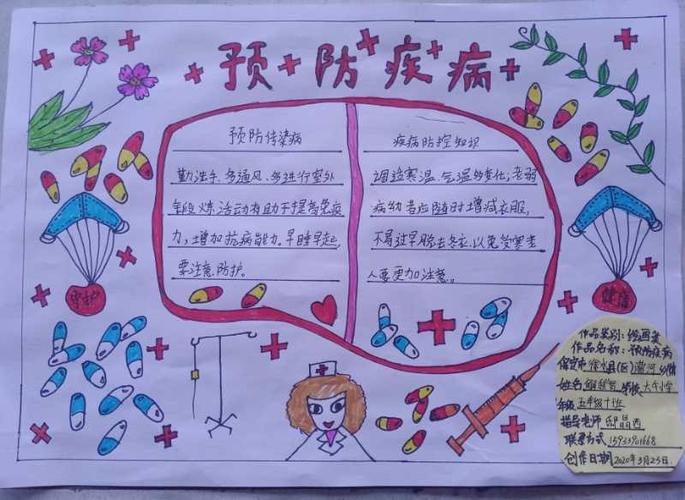 预防疾病
预防传染病
勤洗手、多通风、多进行室外
锻炼,活动有助于提高免疫
力,增加抗病能力。早睡早起,
要注意防护。
疾病防控知识
调适寒温、气温多变化,老弱
病幼者应随时增减衣服,
不易过早脱去冬衣,以免受寒老
人要更加注意。
守护
健信
作品类别:绘画类
作品名称:预防疾病
保定市徐水县(区)瀑河乡镇
姓名 学校大午小学
年级 五年级
指导老师
联系方式
创作日期2020年3月25日